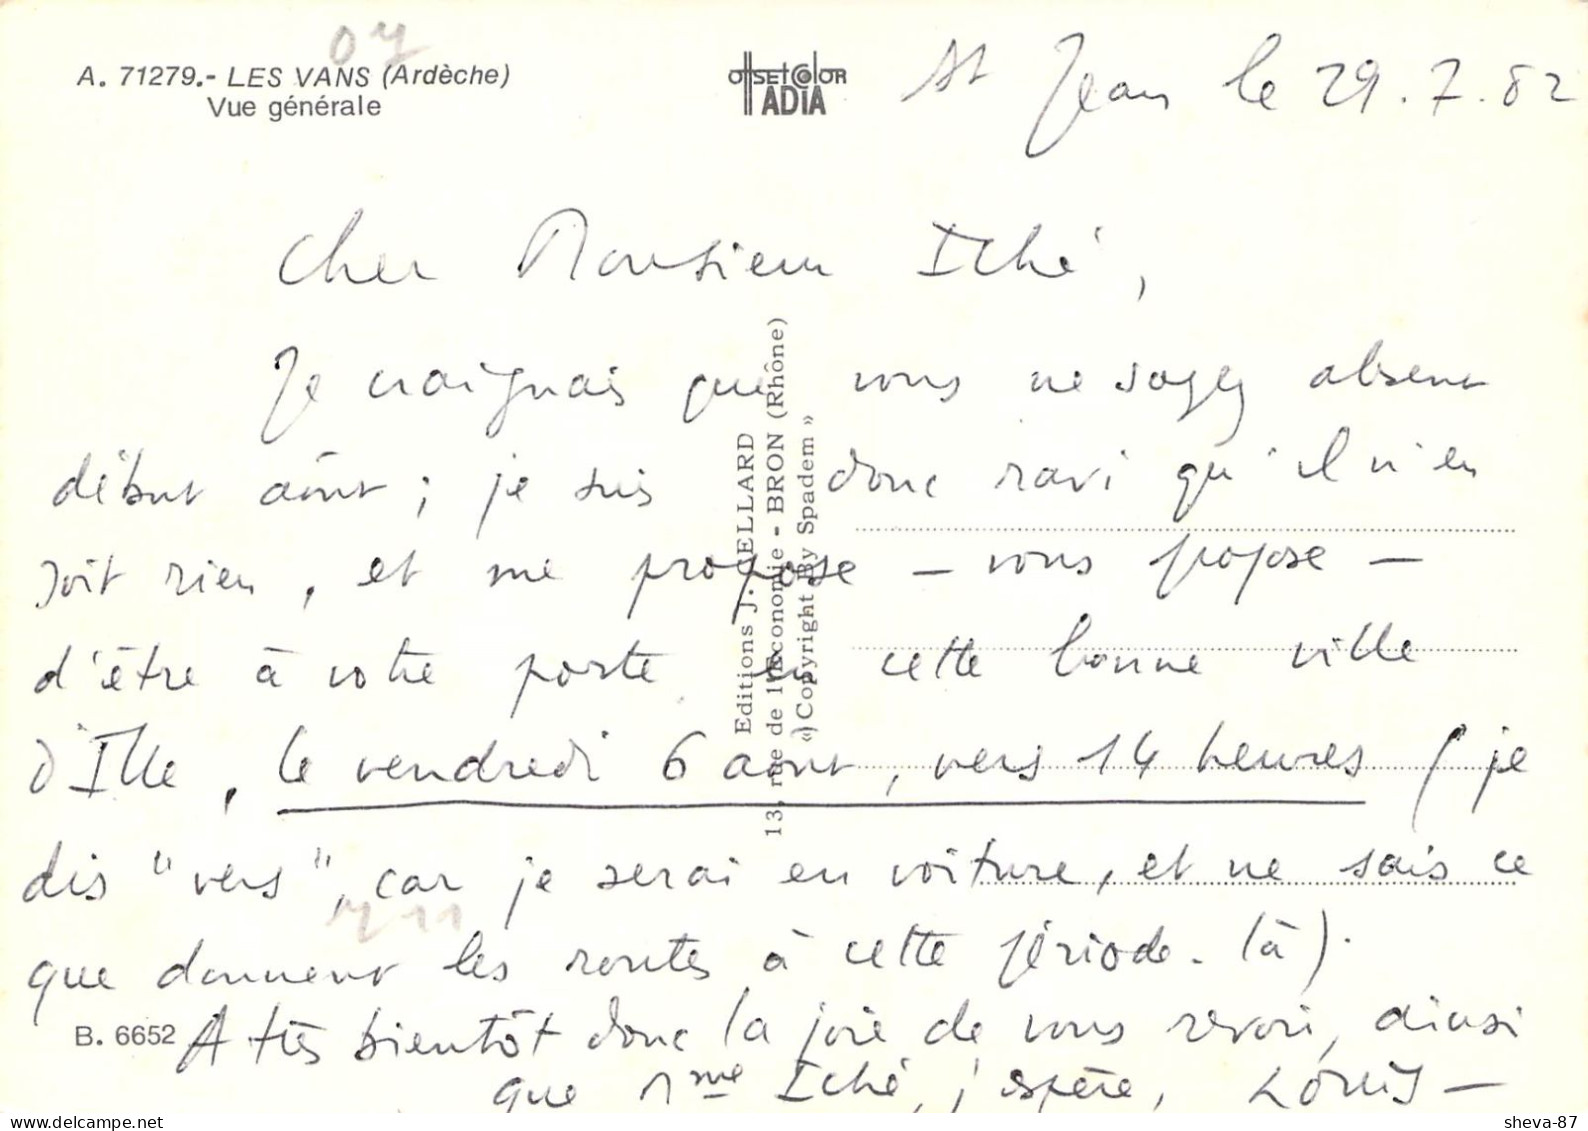 07
A. 71279.- LES VANS (Ardèche)
Vue générale
OffSEtCOlOR
ADIA
St Jean le 29.7.82
Cher Monsieur Iché,
Je craignais que vous ne soyez absent
début août ; je suis donc ravi qu'il n'en
soit rien, et me propose – vous propose –
d'être à votre porte en cette bonne ville
d'Ille, le vendredi 6 août, vers 14 heures (je
dis "vers", car je serai en voiture, et ne sais ce
que donnent les routes à cette période-là).
A très bientôt donc la joie de vous revoir, ainsi
que Mme Iché, j'espère, LOUIS –
711
B. 6652
Editions J. CELLARD
13, rue de l'Economie - BRON (Rhône)
«) Copyright By Spadem »
sheva-87